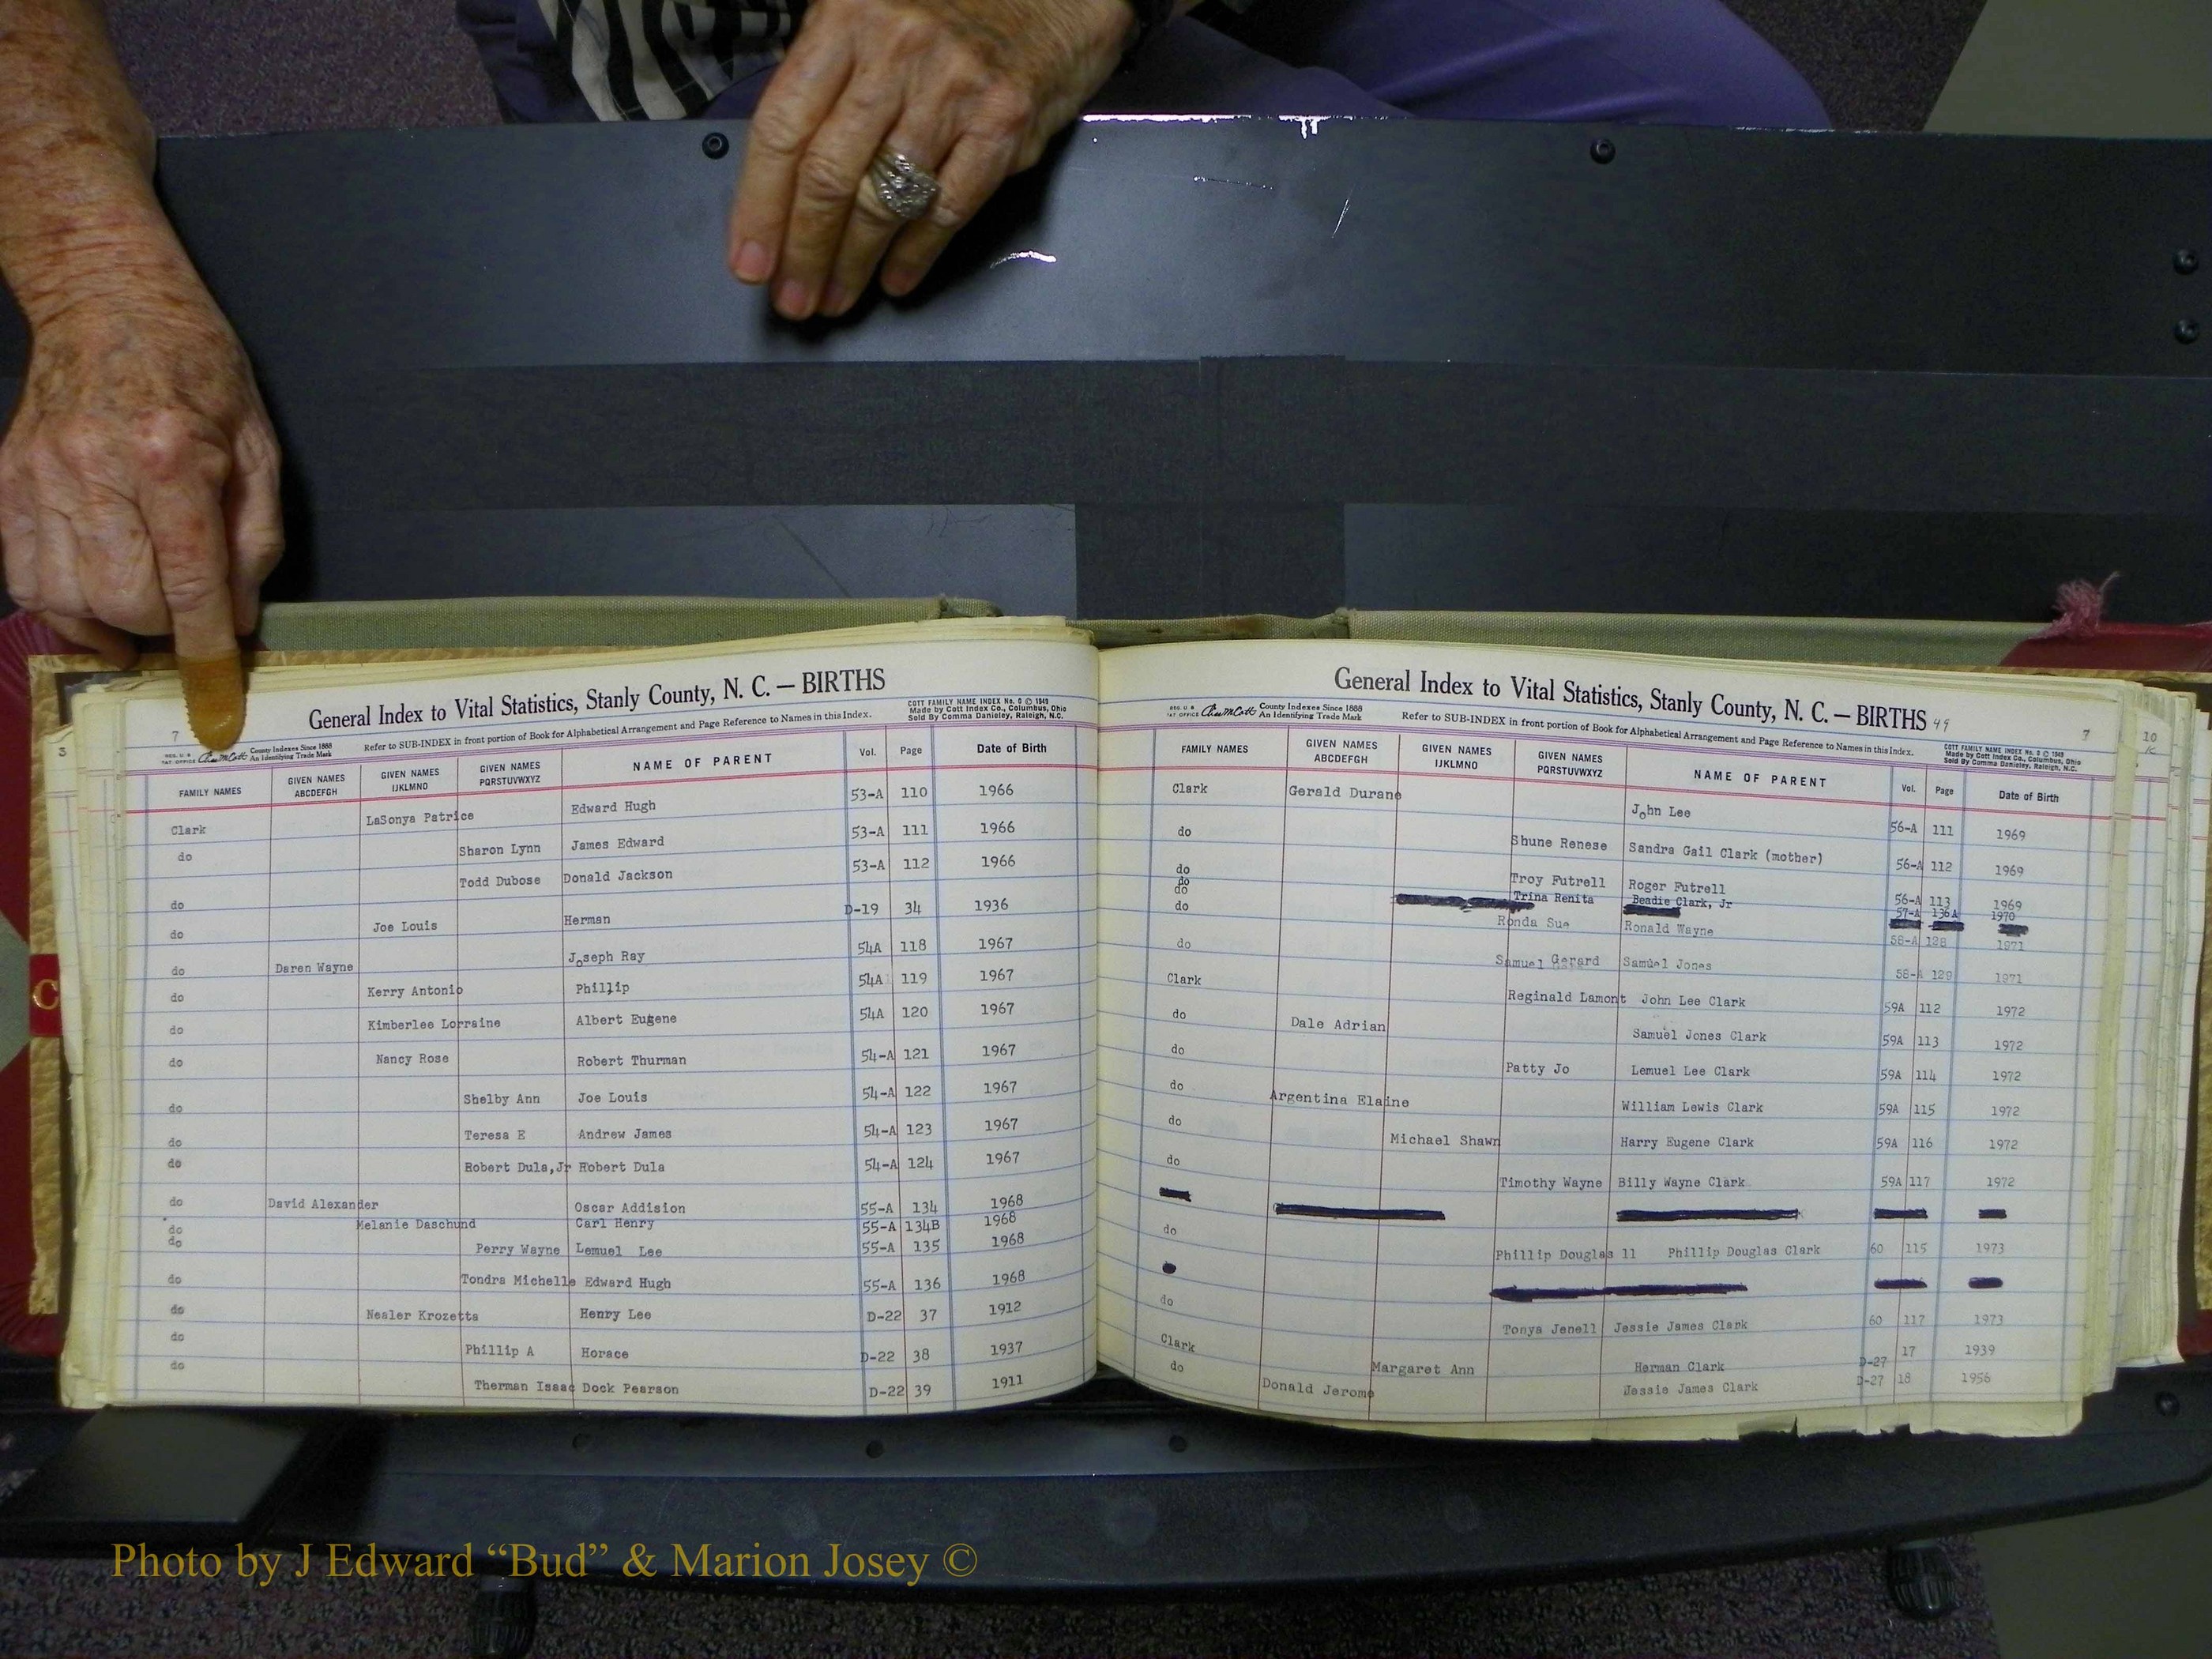 General Index to Vital Statistics, Stanly County, N. C. — BIRTHS
COTT FAMILY NAME INDEX No. 0 © 1949
Made by Cott Index Co., Columbus, Ohio
Sold By Comma Danieley, Raleigh, N.C.
7
County Indexes Since 1888
An Identifying Trade Mark
Refer to SUB-INDEX in front portion of Book for Alphabetical Arrangement and Page Reference to Names in this Index.
FAMILY NAMES GIVEN NAMES ABCDEFGH GIVEN NAMES IJKLMNO GIVEN NAMES PQRSTUVWXYZ NAME OF PARENT Vol. Page Date of Birth
Clark LaSonya Patrice Edward Hugh 53-A 110 1966
do Sharon Lynn James Edward 53-A 111 1966
do Todd Dubose Donald Jackson 53-A 112 1966
do Joe Louis Herman D-19 34 1936
do Daren Wayne Joseph Ray 54A 118 1967
do Kerry Antonio Phillip 54A 119 1967
do Kimberlee Lorraine Albert Eugene 54A 120 1967
do Nancy Rose Robert Thurman 54-A 121 1967
do Shelby Ann Joe Louis 54-A 122 1967
do Teresa E Andrew James 54-A 123 1967
do Robert Dula,Jr Robert Dula 54-A 124 1967
do David Alexander Oscar Addision 55-A 134 1968
do Melanie Daschund Carl Henry 55-A 134B 1968
do Perry Wayne Lemuel Lee 55-A 135 1968
do Tondra Michelle Edward Hugh 55-A 136 1968
do Nealer Krozetts Henry Lee D-22 37 1912
do Phillip A Horace D-22 38 1937
do Therman Isaac Dock Pearson D-22 39 1911
General Index to Vital Statistics, Stanly County, N. C. — BIRTHS 49
County Indexes Since 1888
An Identifying Trade Mark
Refer to SUB-INDEX in front portion of Book for Alphabetical Arrangement and Page Reference to Names in this Index.
7
COTT FAMILY NAME INDEX No. 0 © 1949
Made by Cott Index Co., Columbus, Ohio
Sold By Comma Danieley, Raleigh, N.C.
FAMILY NAMES GIVEN NAMES ABCDEFGH GIVEN NAMES IJKLMNO GIVEN NAMES PQRSTUVWXYZ NAME OF PARENT Vol. Page Date of Birth
Clark Gerald Durane John Lee 56-A 111 1969
do Shune Renese Sandra Gail Clark (mother) 56-A 112 1969
do Troy Futrell Roger Futrell 56-A 113 1969
do Trina Renita Beadie Clark, Jr 57-A 136A 1970
do
do Ronda Sue Ronald Wayne 58-A 128 1971
do Samuel Gerard Samuel Jones 58-A 129 1971
Clark Reginald Lamont John Lee Clark 59A 112 1972
do Dale Adrian Samuel Jones Clark 59A 113 1972
do Patty Jo Lemuel Lee Clark 59A 114 1972
do Argentina Elaine William Lewis Clark 59A 115 1972
do Michael Shawn Harry Eugene Clark 59A 116 1972
do Timothy Wayne Billy Wayne Clark 59A 117 1972
do Phillip Douglas 11 Phillip Douglas Clark 60 115 1973
do Tonya Jenell Jessie James Clark 60 117 1973
Clark Margaret Ann Herman Clark D-27 17 1939
do Donald Jerome Jessie James Clark D-27 18 1956
3
10
C
Photo by J Edward “Bud” & Marion Josey ©